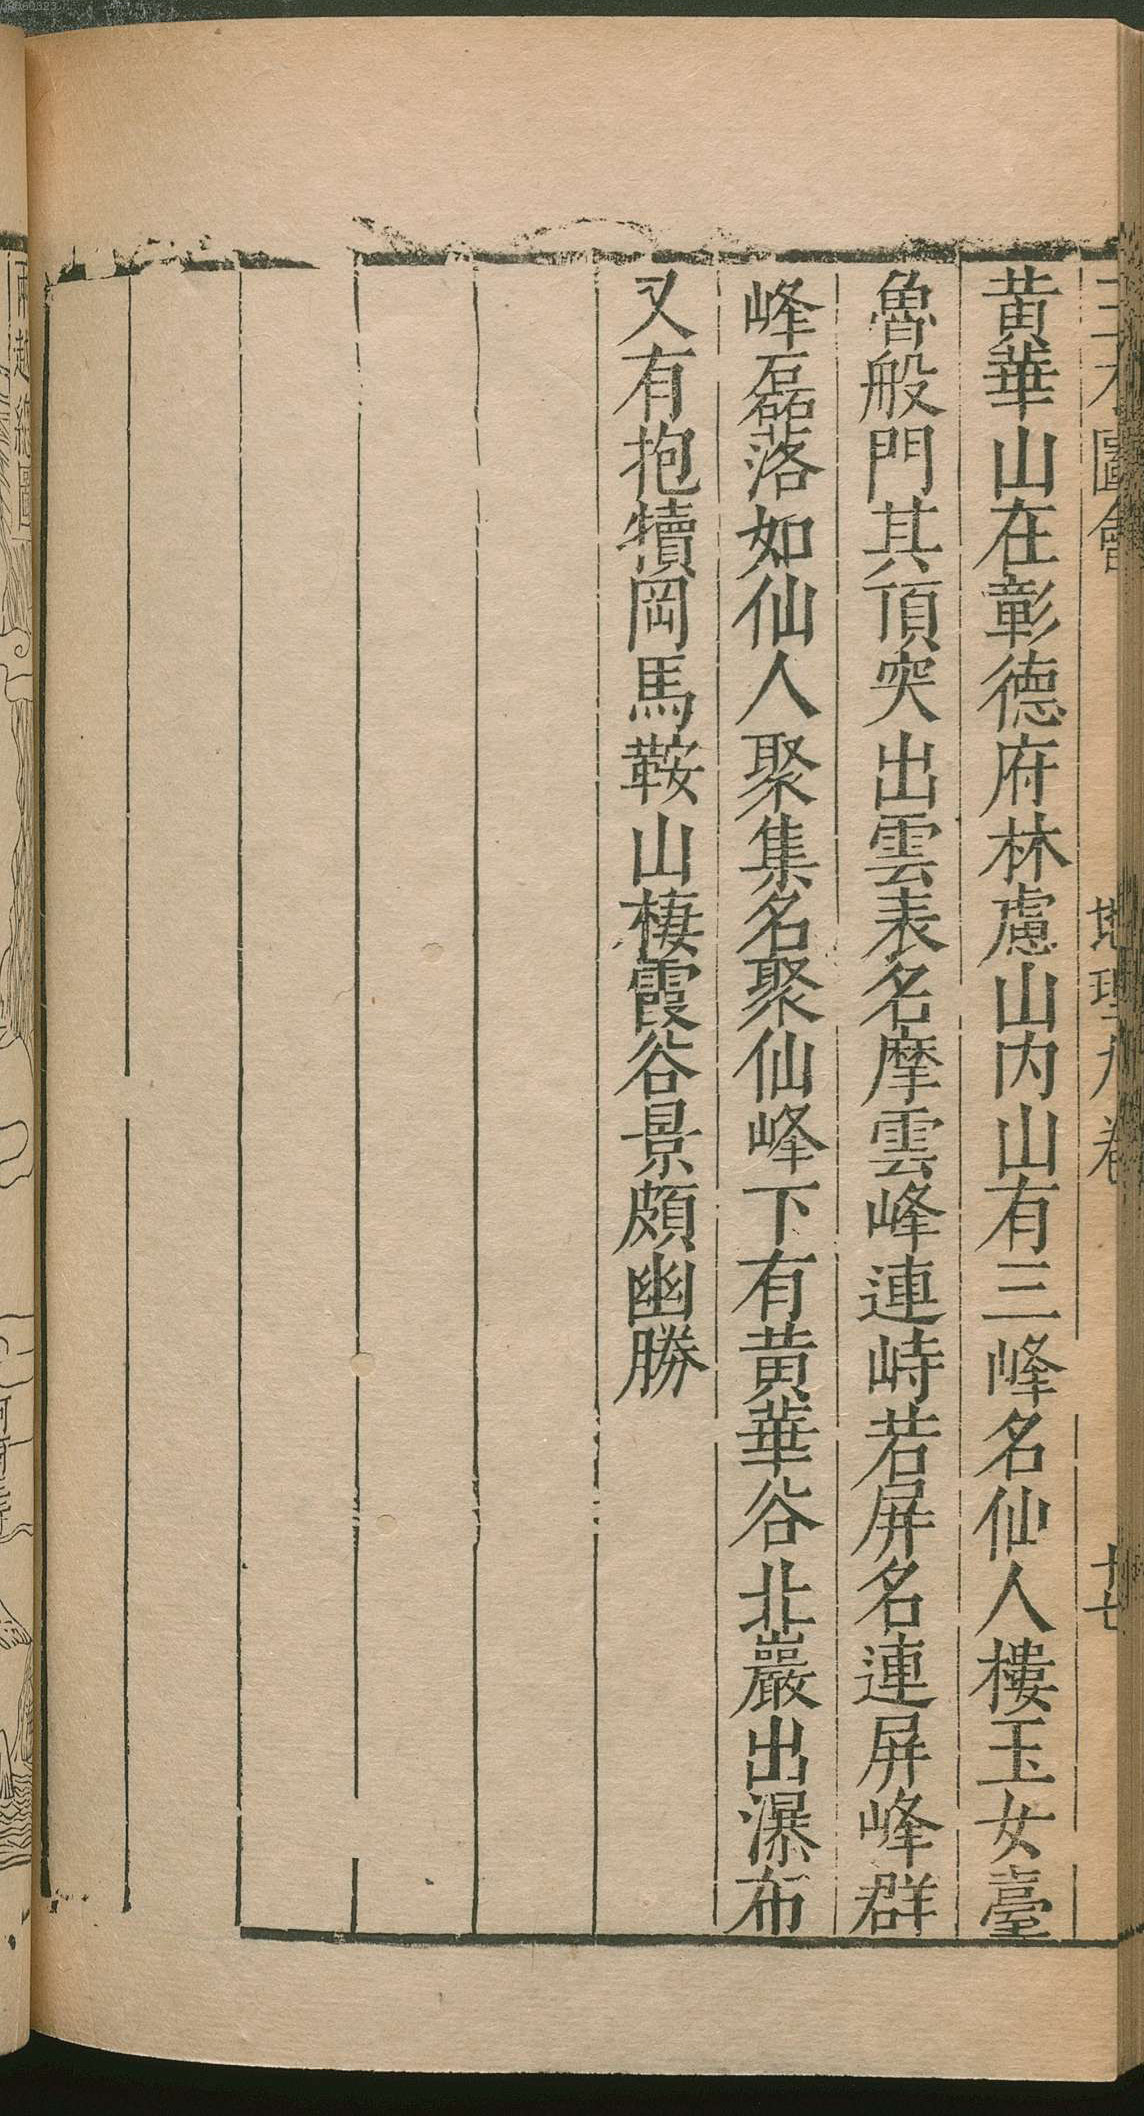 三才圖會 地理八卷 十七
黃華山在彰德府林慮山內山有三峰名仙人樓玉女臺
魯般門其頂突出雲表名摩雲峰連峙若屏名連屏峰群
峰磊落如仙人聚集名聚仙峰下有黃華谷北巖出瀑布
又有抱犢岡馬鞍山棲霞谷景頗幽勝